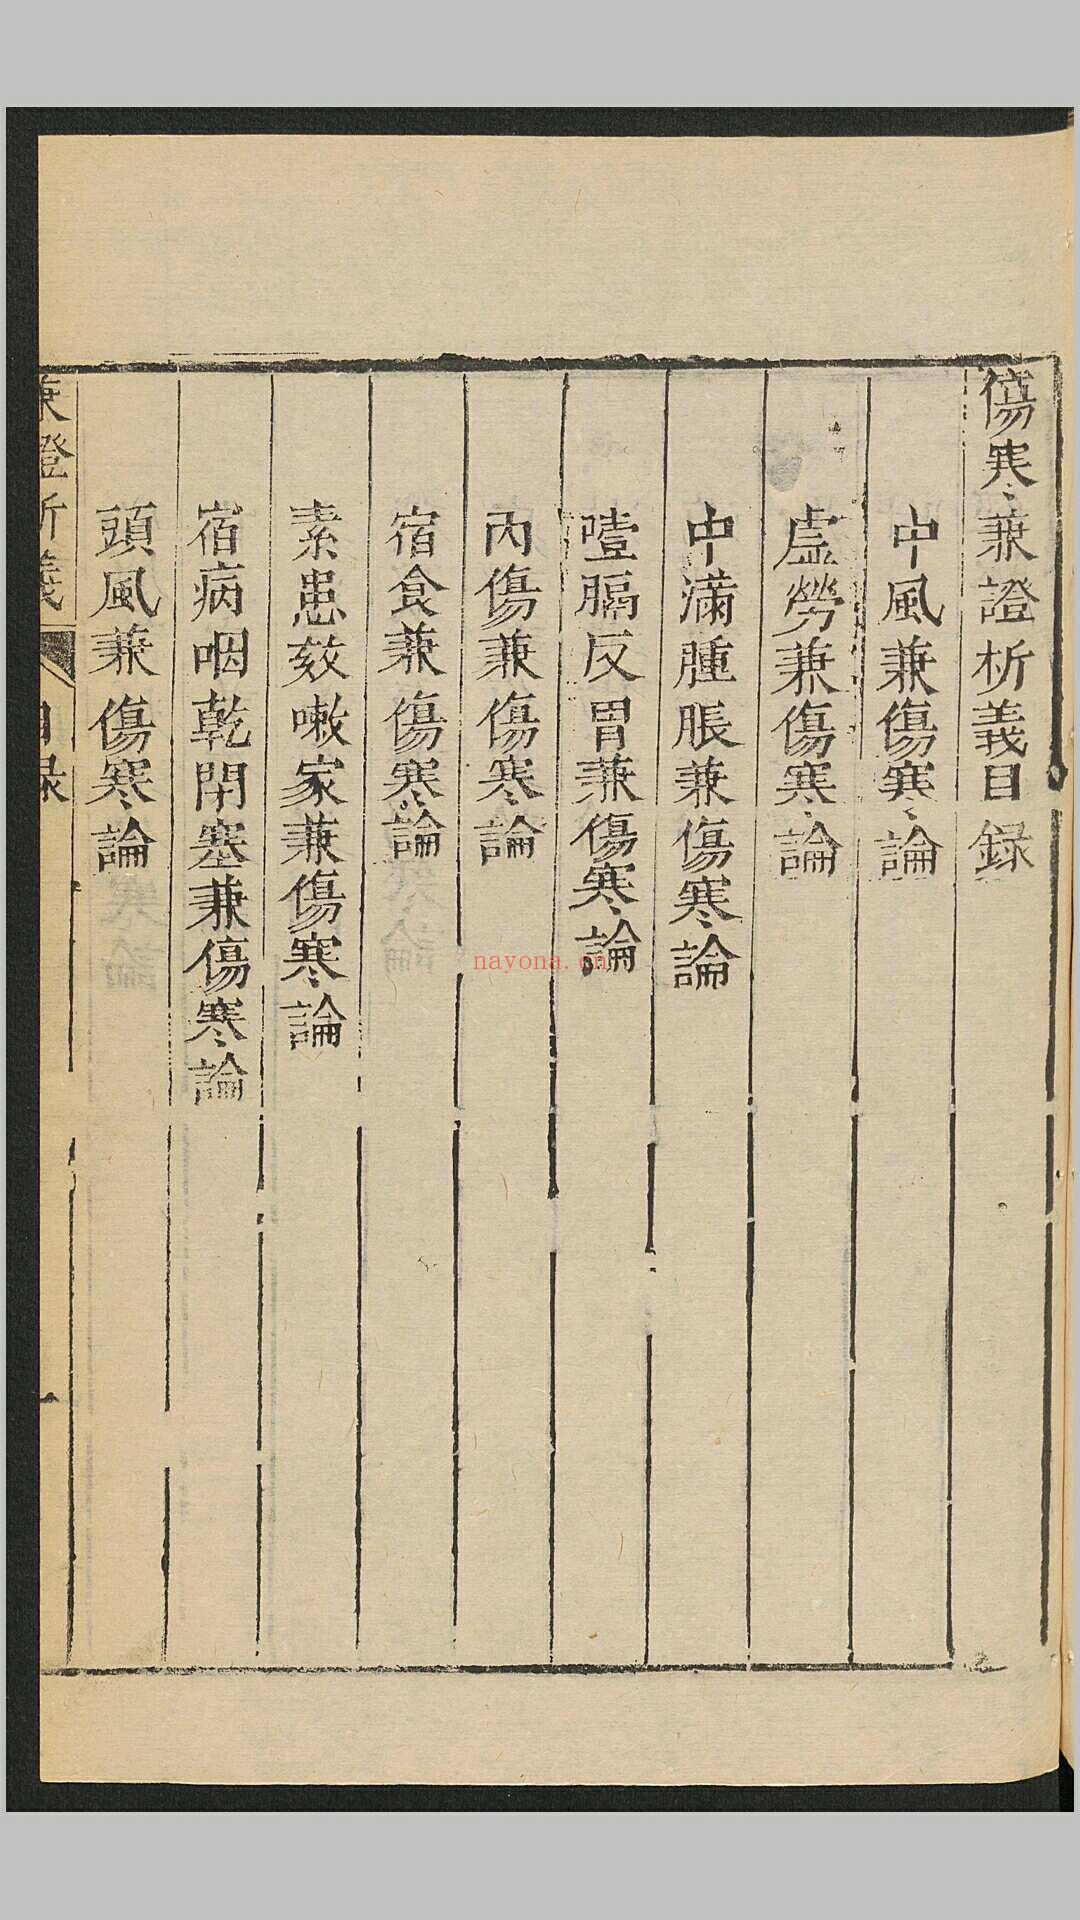 傷寒兼證析義目錄
中風兼傷寒論
虛勞兼傷寒論
中滿腫脹兼傷寒論
噎膈反胃兼傷寒論
內傷兼傷寒論
宿食兼傷寒論
素患欬嗽家兼傷寒論
宿病咽乾閉塞兼傷寒論
頭風兼傷寒論
兼證析義 目錄 一
nayona.cn